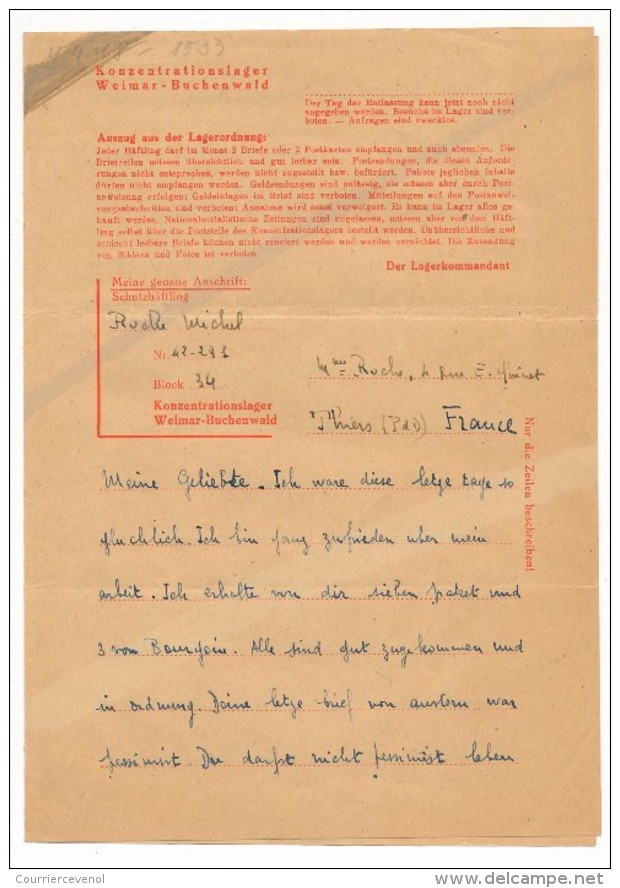 Konzentrationslager
Weimar-Buchenwald
Der Tag der Entlassung kann jetzt noch nicht
angegeben werden. Besuche im Lager sind ver-
boten. — Anfragen sind zwecklos.
Auszug aus der Lagerordnung:
Jeder Häftling darf im Monat 2 Briefe oder 2 Postkarten empfangen und auch absenden. Die
Briefzeilen müssen übersichtlich und gut lesbar sein. Postsendungen, die diesen Anforde-
rungen nicht entsprechen, werden nicht zugestellt bzw. befördert. Pakete jeglichen Inhalts
dürfen nicht empfangen werden. Geldsendungen sind zulässig, sie müssen aber durch Post-
anweisung erfolgen; Geldeinlagen im Brief sind verboten. Mitteilungen auf den Postanwei-
sungsabschnitten sind verboten; Annahme wird sonst verweigert. Es kann im Lager alles ge-
kauft werden. Nationalsozialistische Zeitungen sind zugelassen, müssen aber von dem Häft-
ling selbst über die Poststelle des Konzentrationslagers bestellt werden. Unübersichtliche und
schlecht lesbare Briefe können nicht zensiert werden und werden vernichtet. Die Zusendung
von Bildern und Fotos ist verboten.
Der Lagerkommandant
Meine genaue Anschrift:
Schutzhäftling
Roche Michel
Nr. 42-291
Block 34
Konzentrationslager
Weimar-Buchenwald
Mme Roche, 4 rue E. Quinet
Thiers (PdD) France
Nur die Zeilen beschreiben!
Meine Geliebte. Ich ware diese letze tage so
gluchlich. Ich bin ganz zufrieden uber mein
arbeit. Ich erhalte von dir sieben paket und
3 von Bourgoin. Alle sind gut zugekommen und
in ordnung. Deine letze brief von austern war
pessimist. Du darfst nicht pessimist leben
Courriercevenol
delcampe.net